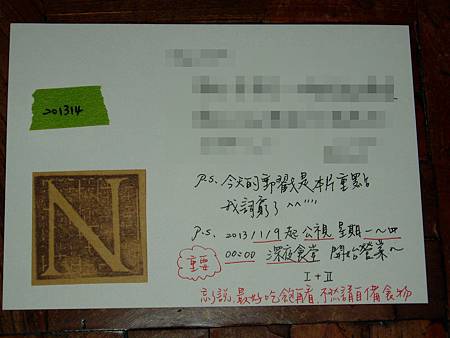 201314
N
P.S. 今天的郵戳是本片重點
我詞窮了 ^^""
P.S. 2013 1/9 起 公視 星期一~四
重要
00:00 深夜食堂 開始營業~
I+II
忘說, 最好吃飽再看, 不然請自備食物